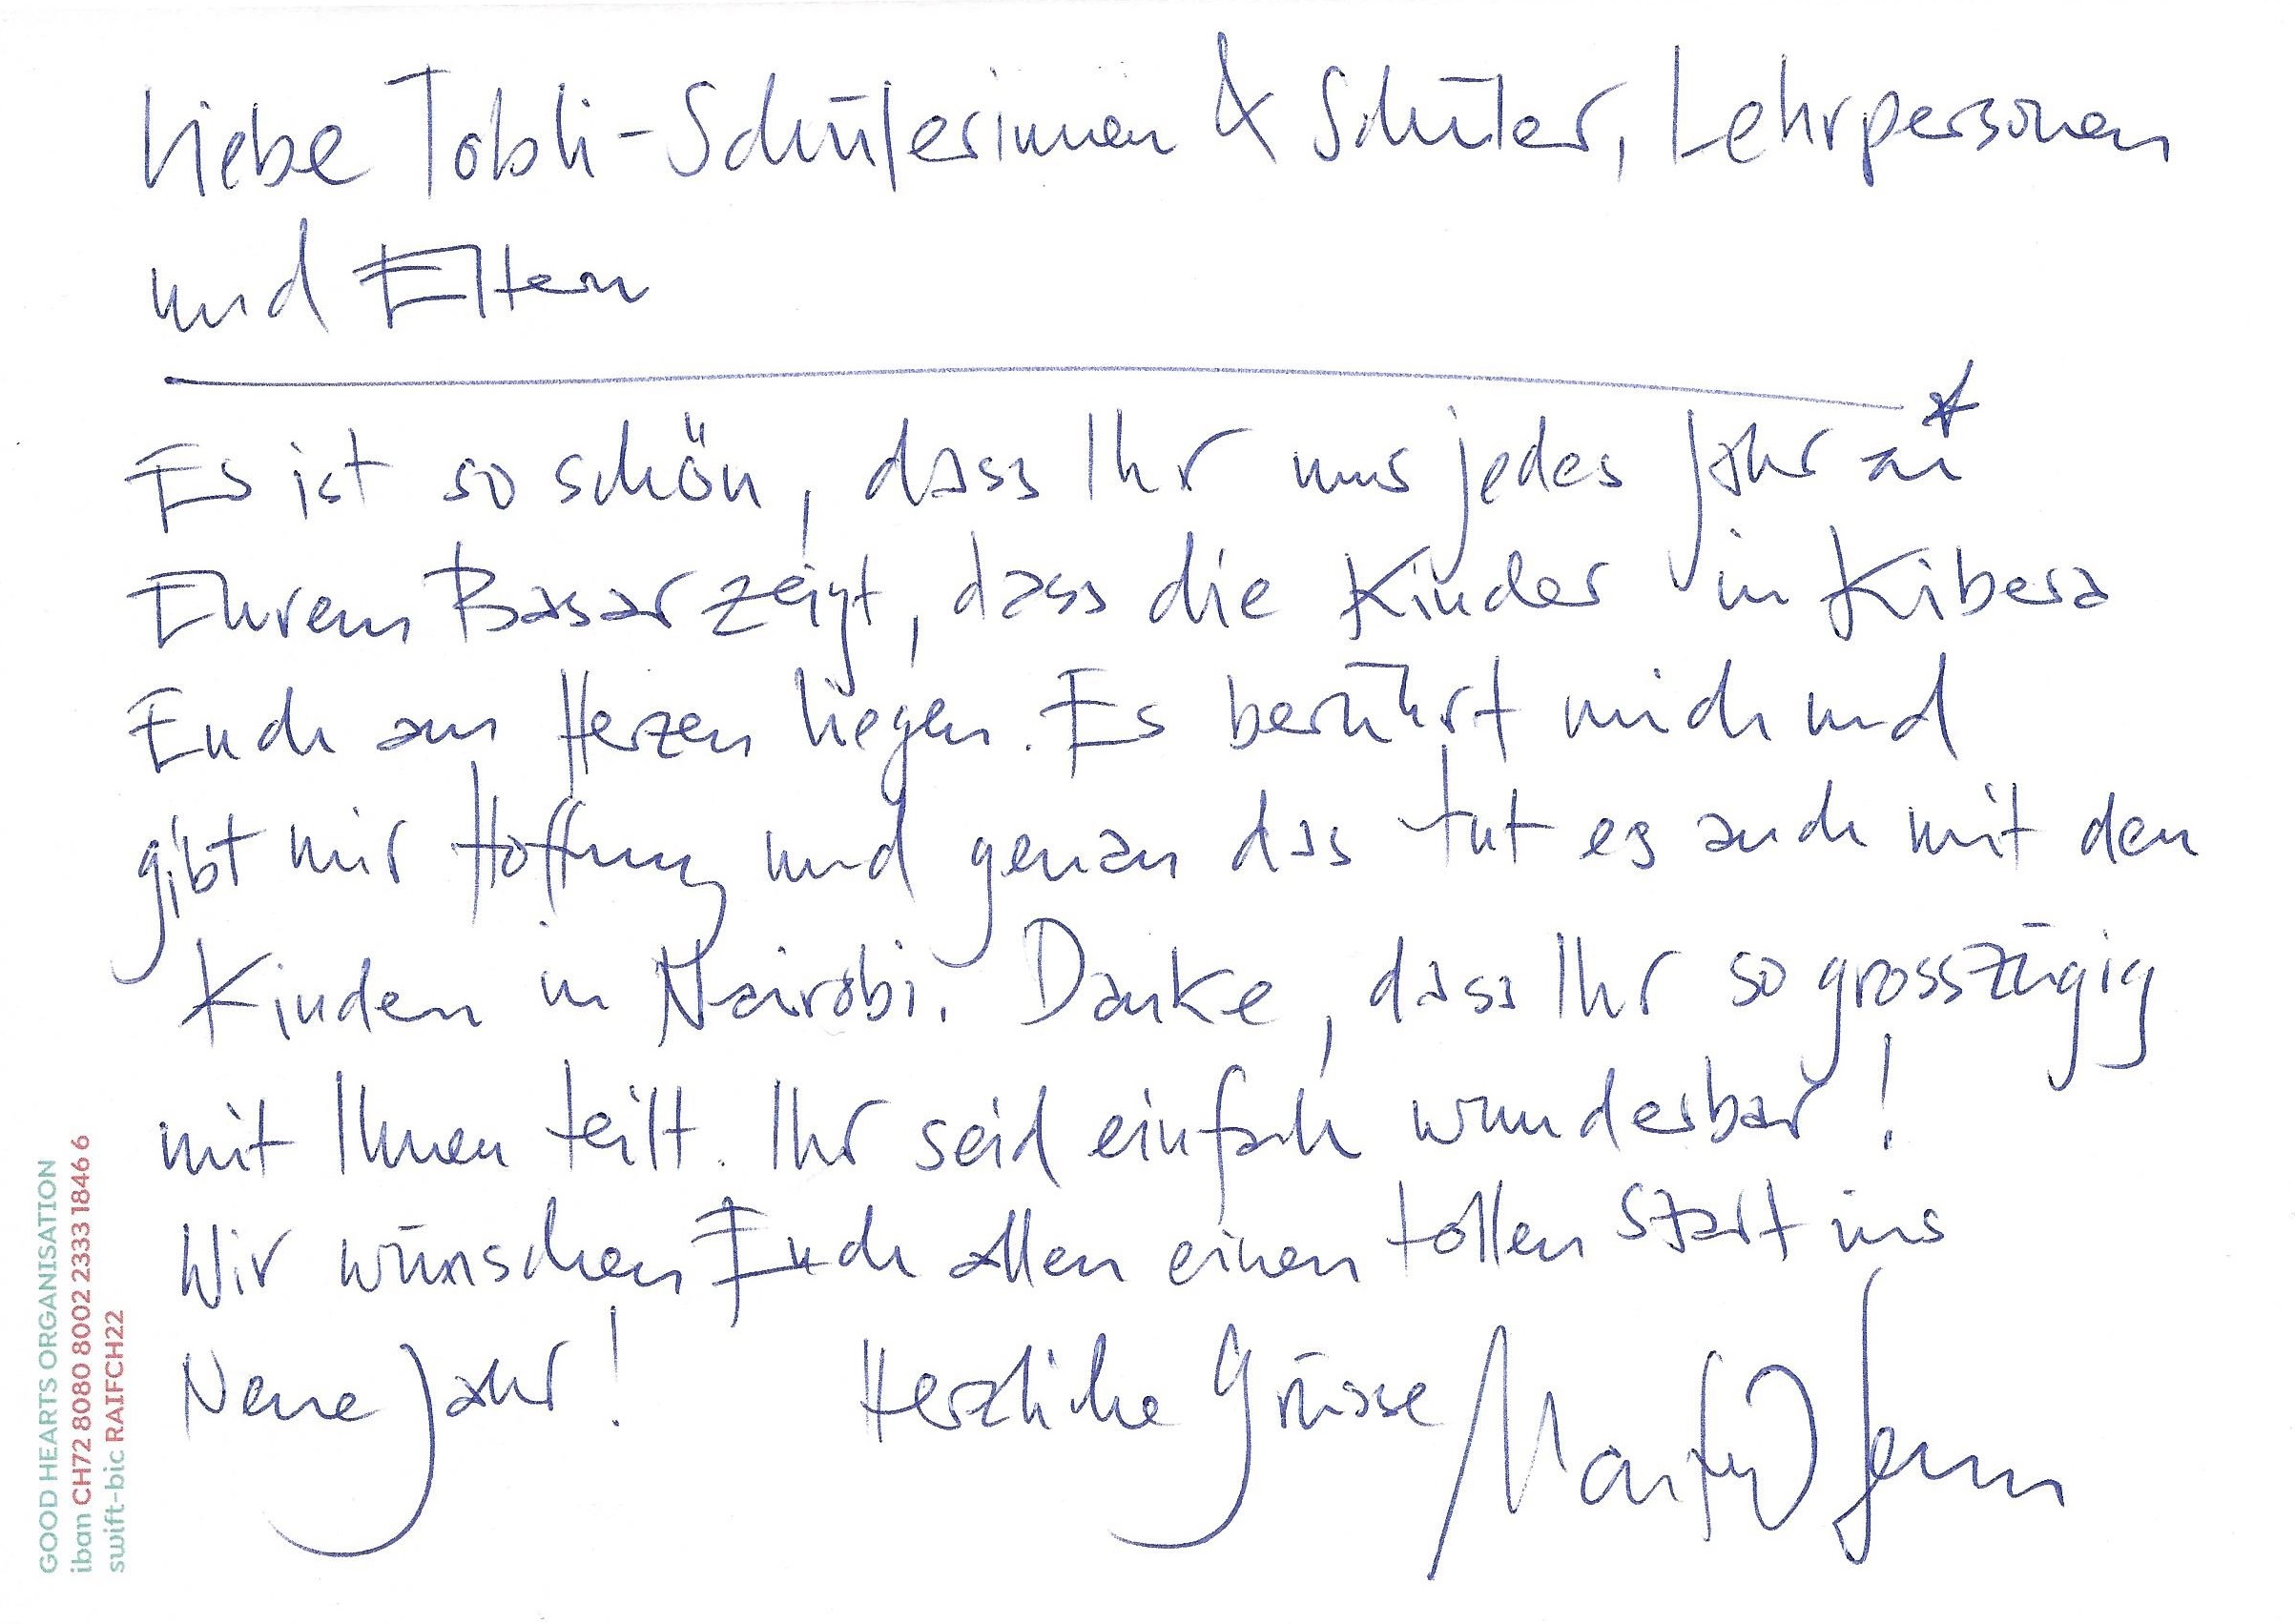 Liebe Tobli-Schülerinnen & Schüler, Lehrpersonen
und Eltern
Es ist so schön, dass Ihr uns jedes Jahr an
Ehrem Basar zeigt, dass die Kinder in Kibera
Euch am Herzen liegen. Es berührt mich und
gibt mir Hoffnung und genau das tut es auch mit den
Kindern in Nairobi. Danke, dass Ihr so grosszügig
mit Ihnen teilt. Ihr seid einfach wunderbar!
Wir wünschen Euch allen einen tollen Start ins
Neue Jahr! Herzliche Grüsse
GOOD HEARTS ORGANISATION
iban CH72 8080 8002 2333 1846 6
swift-bic RAIFCH22